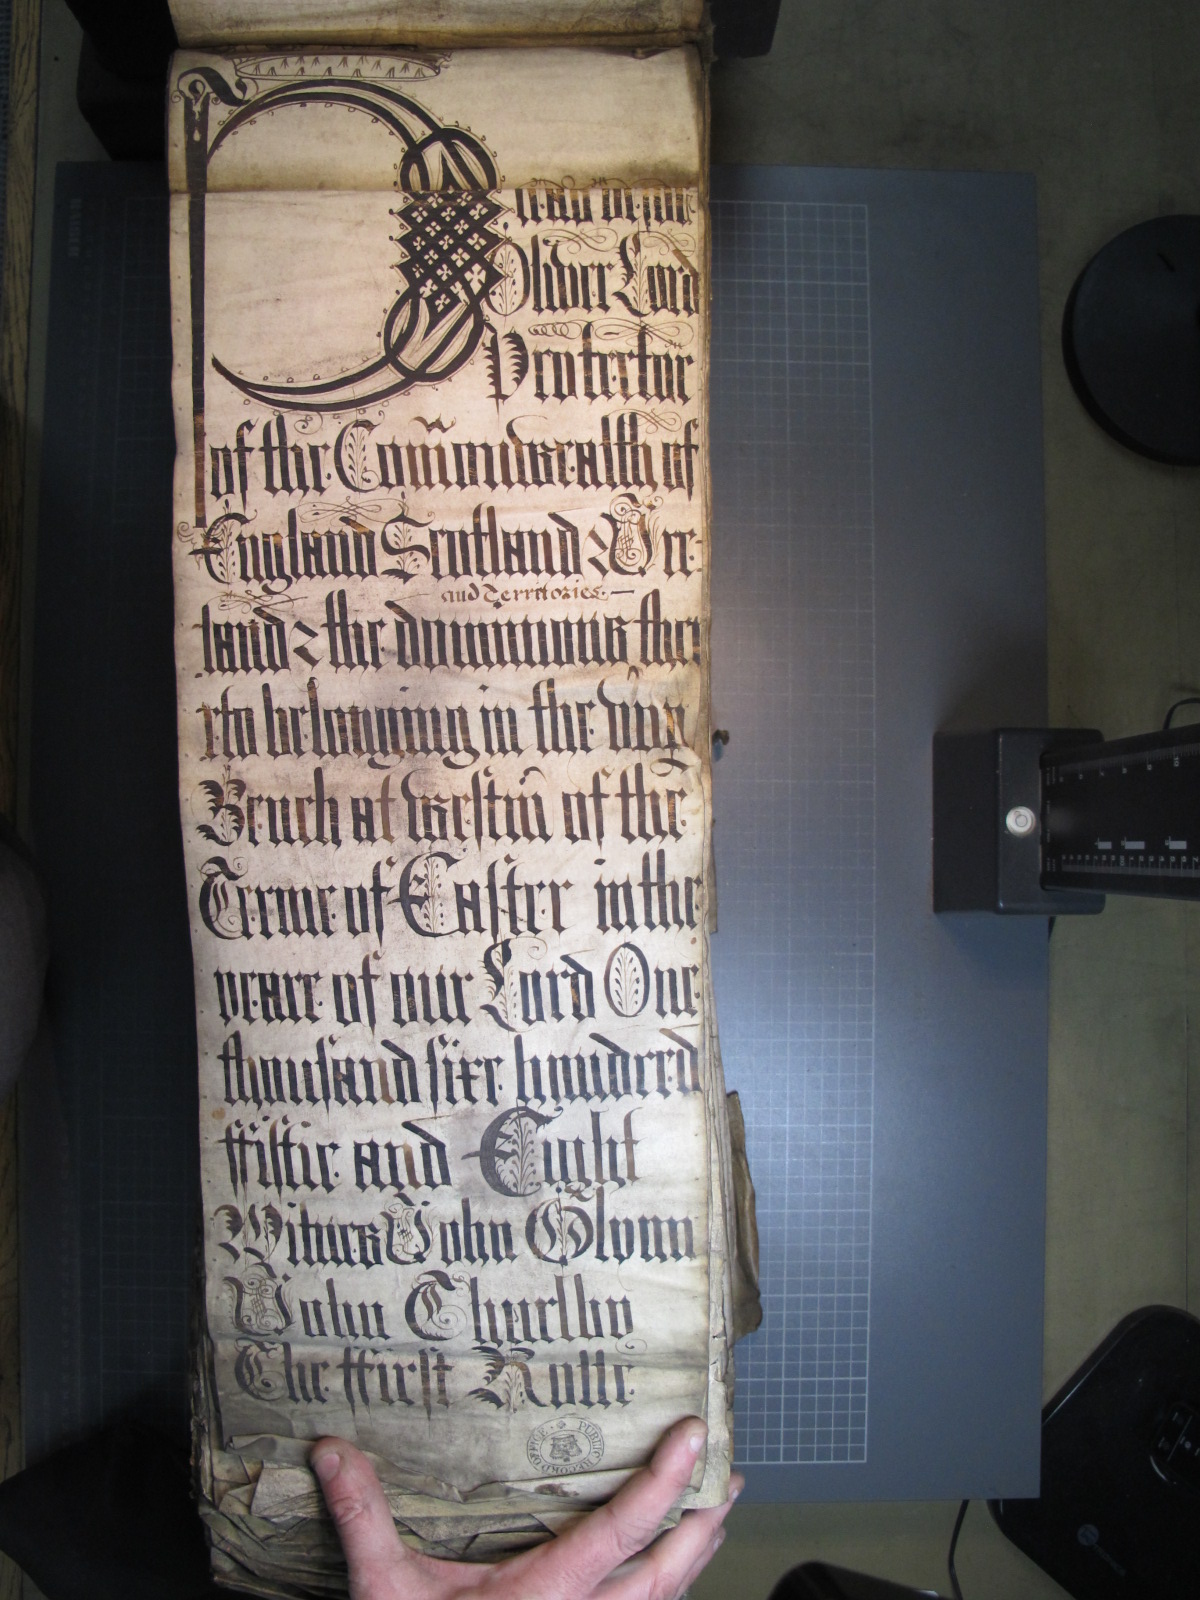 Pleas before
Oliver Lord
Protector
of the Com̄onwealth of
England Scotland & Ire-
and Territories
land & the dominions the
rto belonging in the upp
Bench at westm̄ of the
Terme of Easter in the
yeare of our Lord One
thousand sixe hundred
ffiftie and Eight
Witnes John Glynn
John Thurlby
The ffirst Rolle
PUBLIC RECORD OFFICE